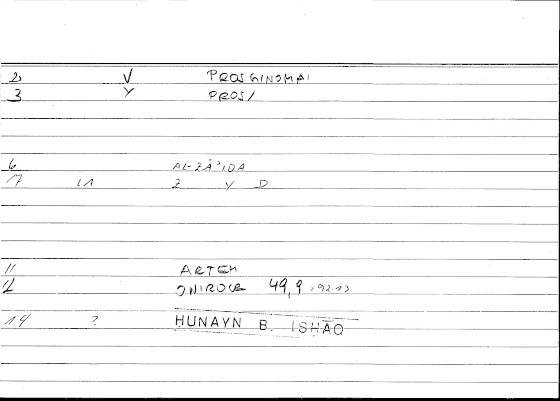 2 V PROSGINOMAI
3 Y PROS/
6 AL-ZĀ'IDA
7 LA Z Y D
11 ARTEM
12 ONIROCR 49,9
14 ? HUNAYN B. ISHĀQ